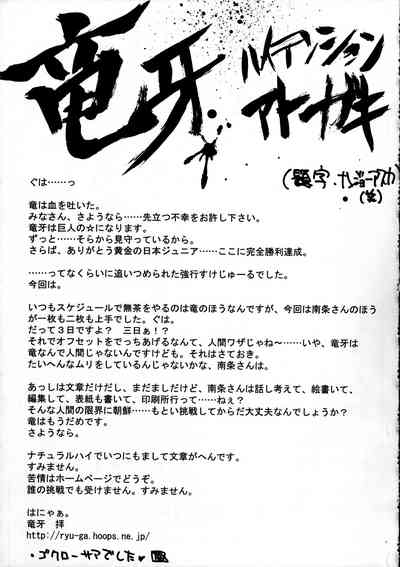 竜牙
ハイテンション
アトーガキ
ぐは……っ
竜は血を吐いた。
みなさん、さようなら……先立つ不幸をお許し下さい。
竜牙は巨人の☆になります。
ずっと……そらから見守っているから。
さらば、ありがとう黄金の日本ジュニア……ここに完全勝利達成。
……ってなくらいに追いつめられた強行すけじゅーるでした。
今回は。
いつもスケジュールで無茶をやるのは竜のほうなんですが、今回は南条さんのほう
が一枚も二枚も上手でした。ぐは。
だって３日ですよ？　三日ぁ！？
それでオフセットをでっちあげるなんて、人間ワザじゃね〜……いや、竜牙は
竜なんで人間じゃないんですけども。それはさておき。
たいへんなムリをしているんじゃないかな、南条さんは。
あっしは文章だけだし、まだましだけど、南条さんは話し考えて、絵書いて、
編集して、表紙も書いて、印刷所行って……ねぇ？
そんな人間の限界に朝鮮……もとい挑戦してからだ大丈夫なんでしょうか？
竜はもうだめです。
さようなら。
ナチュラルハイでいつにもまして文章がへんです。
すみません。
苦情はホームページでどうぞ。
誰の挑戦でも受けません。すみません。
はにゃぁ。
竜牙　拝
http://ryu-ga.hoops.ne.jp/
・ゴクローサアでした♥